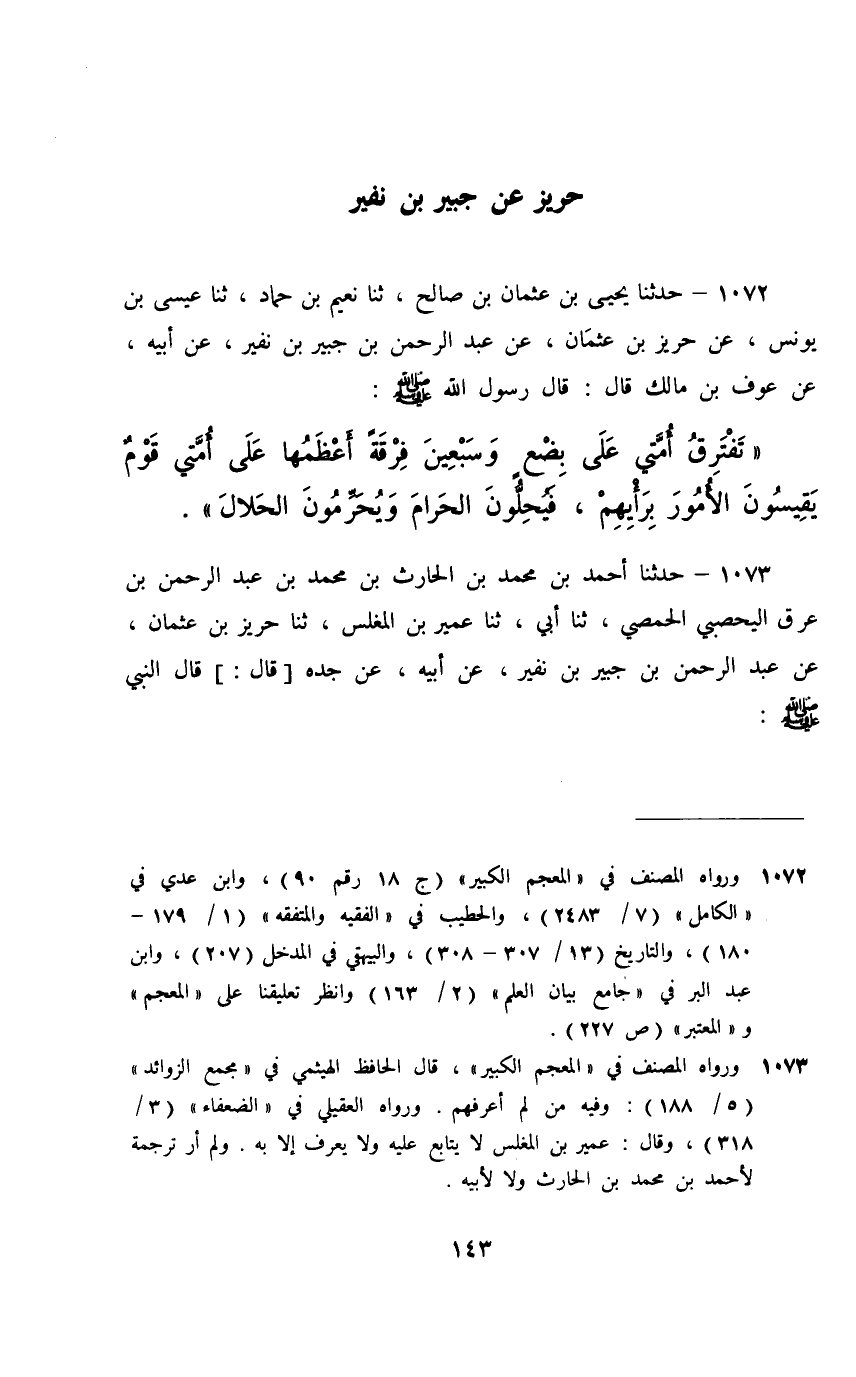 حريز عن جبير بن نفير
١٠٧٢ – حدثنا يحيى بن عثمان بن صالح ، ثنا نعيم بن حماد ، ثنا عيسى بن
يونس ، عن حريز بن عثمَان ، عن عبد الرحمن بن جبير بن نفير ، عن أبيه ،
عن عوف بن مالك قال : قال رسول الله ﷺ :
« تَفْتَرِقُ أُمَّتي عَلَى بِضْعٍ وَسَبْعِينَ فِرْقَةً أَعْظَمُها عَلَى أُمَّتي قَوْمٌ
يَقِيسُونَ الأُمُورَ بِرَأْيِهِمْ ، فَيُحِلُّونَ الحَرامَ وَيُحَرِّمُونَ الحَلالَ» .
١٠٧٣ – حدثنا أحمد بن محمد بن الحارث بن محمد بن عبد الرحمن بن
عرق اليحصبي الحمصي ، ثنا أبي ، ثنا عمير بن المغلس ، ثنا حريز بن عثمان ،
عن عبد الرحمن بن جبير بن نفير ، عن أبيه ، عن جده [ قال : ] قال النبي
ﷺ :
١٠٧٢ ورواه المصنف في «المعجم الكبير» (ج ١٨ رقم ٩٠) ، وابن عدي في
«الكامل» (٧/ ٢٤٨٣) ، والخطيب في «الفقيه والمتفقه» (١/ ١٧٩ –
١٨٠) ، والتاريخ (١٣/ ٣٠٧ – ٣٠٨) ، والبيهقي في المدخل (٢٠٧) ، وابن
عبد البر في «جامع بيان العلم» (٢/ ١٦٣) وانظر تعليقنا على «المعجم»
و «المعتبر» (ص ٢٢٧) .
١٠٧٣ ورواه المصنف في «المعجم الكبير» ، قال الحافظ الهيثمي في «مجمع الزوائد»
(٥/ ١٨٨) : وفيه من لم أعرفهم . ورواه العقيلي في «الضعفاء» (٣/
٣١٨) ، وقال : عمير بن المغلس لا يتابع عليه ولا يعرف إلا به . ولم أر ترجمة
لأحمد بن محمد بن الحارث ولا لأبيه .
١٤٣